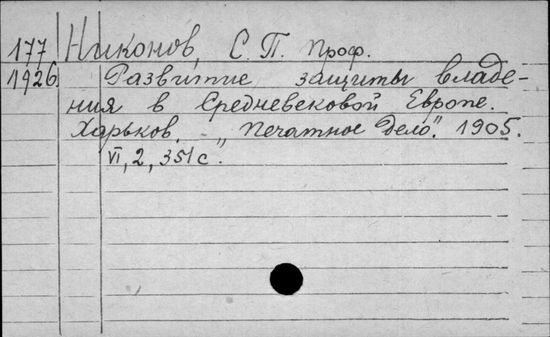 177 Никонов, С. П. проф.
1926. Развитие защиты владе-
ния в Средневековой Европе.
Харьков, „Печатное дело". 1905.
VI, 2, 351 с.